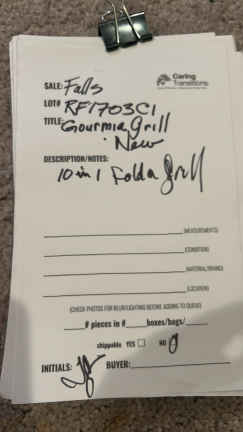 SALE: Falls
Caring Transitions
LOT# RF1703C1
TITLE: Gourmia Grill
New
DESCRIPTION/NOTES:
10 in 1 Fold a Grill
(MEASUREMENTS)
(CONDITION)
(MATERIAL/BRAND)
(LOCATION)
(CHECK PHOTOS FOR BLUR/LIGHTING BEFORE ADDING TO QUEUE)
# pieces in # boxes/bags/
shippable YES NO
INITIALS: BUYER: